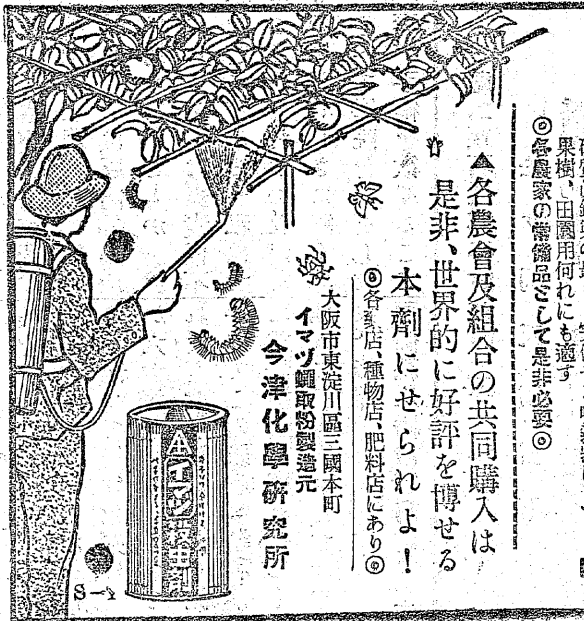 果樹、田園用何れにも適す
◎各農家の常備品として是非必要◎
▲各農會及組合の共同購入は
是非、世界的に好評を博せる
本劑にせられよ！
◎各藥店、種物店、肥料店にあり◎
大阪市東淀川區三國本町
イマヅ蠅取粉製造元
今津化學硏究所